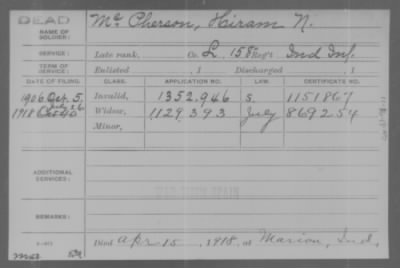 DEAD
NAME OF SOLDIER: McPherson, Hiram N.
SERVICE: Late rank, Co. L, 158 Reg't Ind Inf.
TERM OF SERVICE: Enlisted , 1 Discharged , 1
DATE OF FILING. CLASS. APPLICATION NO. LAW. CERTIFICATE NO.
1906 Oct. 5. Invalid, 1352.946 S. 1151867
1918 Widow, 1129.393 July 869254
Minor,
ADDITIONAL SERVICES:
WAR WITH SPAIN
REMARKS:
Died Apr. 15, 1918, at Marion, Ind.